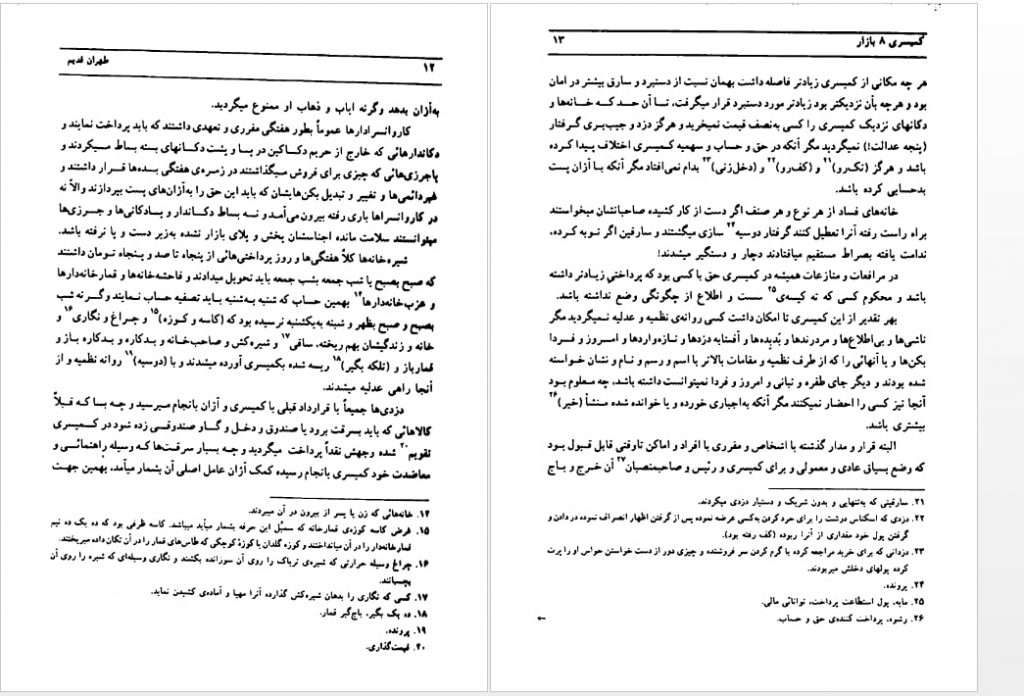 ۱۲ طهران قدیم
به‌آزان بدهد وگرنه ایاب و ذهاب او ممنوع میگردید.
کاروانسرادارها عموماً بطور هفتگی مقرری و تعهدی داشتند که باید پرداخت نمایند و
دکاندارهائی که خارج از حریم دکاکین در پا و پشت دکانهای بسته بساط میکردند و
پاجرزی‌هائی که چیزی برای فروش میگذاشتند در زمره‌ی هفتگی بده‌ها قرار داشتند و
غیردائمی‌ها و تغییر و تبدیل بکن‌هایشان که باید این حق را به‌آزان‌های پست بپردازند والا نه
در کاروانسراها باری رفته بیرون می‌آمد و نه بساط دکاندار و پادکانی‌ها و جرزی‌ها
میتوانستند سلامت مانده اجناسشان پخش و پلای بازار نشده به‌زیر دست و پا نرفته باشد.
شیره‌خانه‌ها کلاً هفتگی‌ها و روز پرداختی‌هائی از پنجاه تا صد و پنجاه تومان داشتند
که صبح بصبح یا شب جمعه بشب جمعه باید تحویل میدادند و فاحشه‌خانه‌ها و قمارخانه‌دارها
و عزب‌خانه‌دارها۱۴ بهمین حساب که شنبه به‌شنبه باید تصفیه حساب نمایند وگرنه شب
بصبح و صبح بظهر و شنبه به‌یکشنبه نرسیده بود که (کاسه و کوزه)۱۵ و چراغ و نگاری۱۶ و
خانه و زندگیشان بهم ریخته، ساقی۱۷ و شیره‌کش و صاحب‌خانه و بدکاره و بدکاره باز و
قمارباز و (تلکه بگیر)۱۸ ریسه شده بکمیسری آورده میشدند و با (دوسیه)۱۹ روانه نظمیه و از
آنجا راهی عدلیه میشدند.
دزدی‌ها جمیعاً با قرارداد قبلی با کمیسری و آزان بانجام میرسید و چه بسا که قبلاً
کالاهائی که باید بسرقت برود یا صندوق و دخل و گاو صندوقی زده شود در کمیسری
تقویم۲۰ شده وجهش نقداً پرداخت میگردید و چه بسیار سرقت‌ها که وسیله راهنمائی و
معاضدت خود کمیسری بانجام رسیده کمک آزان عامل اصلی آن بشمار میآمد، بهمین جهت
۱۴. خانه‌هائی که زن یا پسر از بیرون در آن میبردند.
۱۵. غرض کاسه کوزه‌ی قمارخانه که سمبُل این حرفه بشمار میآید میباشد. کاسه ظرفی بود که ده یک ده نیم
قمارخانه‌دار را در آن میانداختند و کوزه گلدان یا کوزهٔ کوچکی که طاس‌های قمار را در آن تکان داده میریختند.
۱۶. چراغ وسیله حرارتی که شیره‌ی تریاک را روی آن سوزانده بکشند و نگاری وسیله‌ای که شیره را روی آن
بچسبانند.
۱۷. کسی که نگاری را بدهان شیره‌کش گذارده آنرا مهیا و آماده‌ی کشیدن نماید.
۱۸. ده یک بگیر، باج‌گیر قمار.
۱۹. پرونده.
۲۰. قیمت‌گذاری.
کمیسری ۸ بازار ۱۳
هر چه مکانی از کمیسری زیادتر فاصله داشت بهمان نسبت از دستبرد و سارق بیشتر در امان
بود و هرچه بآن نزدیکتر بود زیادتر مورد دستبرد قرار میگرفت، تا آن حد که خانه‌ها و
دکانهای نزدیک کمیسری را کسی به‌نصف قیمت نمیخرید و هرگز دزد و جیب‌بری گرفتار
(پنجه عدالت!) نمیگردید مگر آنکه در حق و حساب و سهمیه کمیسری اختلاف پیدا کرده
باشد و هرگز (تک‌رو)۲۱ و (کف‌رو)۲۲ و (دخل‌زنی)۲۳ بدام نمی‌افتاد مگر آنکه با آزان پست
بدحسابی کرده باشد.
خانه‌های فساد از هر نوع و هر صنف اگر دست از کار کشیده صاحبانشان میخواستند
براه راست رفته آنرا تعطیل کنند گرفتار دوسیه۲۴ سازی میگشتند و سارقین اگر توبه کرده،
ندامت یافته بصراط مستقیم میافتادند دچار و دستگیر میشدند!
در مرافعات و منازعات همیشه در کمیسری حق با کسی بود که پرداختی زیادتر داشته
باشد و محکوم کسی که ته کیسه‌ی۲۵ سست و اطلاع از چگونگی وضع نداشته باشد.
بهر تقدیر از این کمیسری تا امکان داشت کسی روانه‌ی نظمیه و عدلیه نمیگردید مگر
ناشی‌ها و بی‌اطلاع‌ها و مردرندها و بُدبِده‌ها و آفتابه دزدها و تازه‌واردها و امروز و فردا
بکن‌ها و یا آنهائی را که از طرف نظمیه و مقامات بالاتر با اسم و رسم و نام و نشان خواسته
شده بودند و دیگر جای طفره و تبانی و امروز و فردا نمیتوانست داشته باشد، چه معلوم بود
آنجا نیز کسی را احضار نمیکنند مگر آنکه به‌اجباری خورده و یا خوانده شده منشأ (خیر)۲۶
بیشتری باشد.
البته قرار و مدار گذشته با اشخاص و مقرری با افراد و اماکن تاوقتی قابل قبول بود
که وضع بسیاق عادی و معمولی و برای کمیسری و رئیس و صاحبمنصبان۲۷ آن خرج و باج
۲۱. سارقینی که به‌تنهایی و بدون شریک و دستیار دزدی میکردند.
۲۲. دزدی که اسکناس درشت را برای خرد کردن به‌کسی عرضه نموده پس از گرفتن اظهار انصراف نموده در دادن و
گرفتن پول خود مقداری از آنرا ربوده (کف رفته بود).
۲۳. دزدانی که برای خرید مراجعه کرده با گرم کردن سر فروشنده و چیزی دور از دست خواستن حواس او را پرت
کرده پولهای دخلش میربودند.
۲۴. پرونده.
۲۵. مایه، پول استطاعت پرداخت، توانائی مالی.
۲۶. رشوه، پرداخت کننده‌ی حق و حساب.